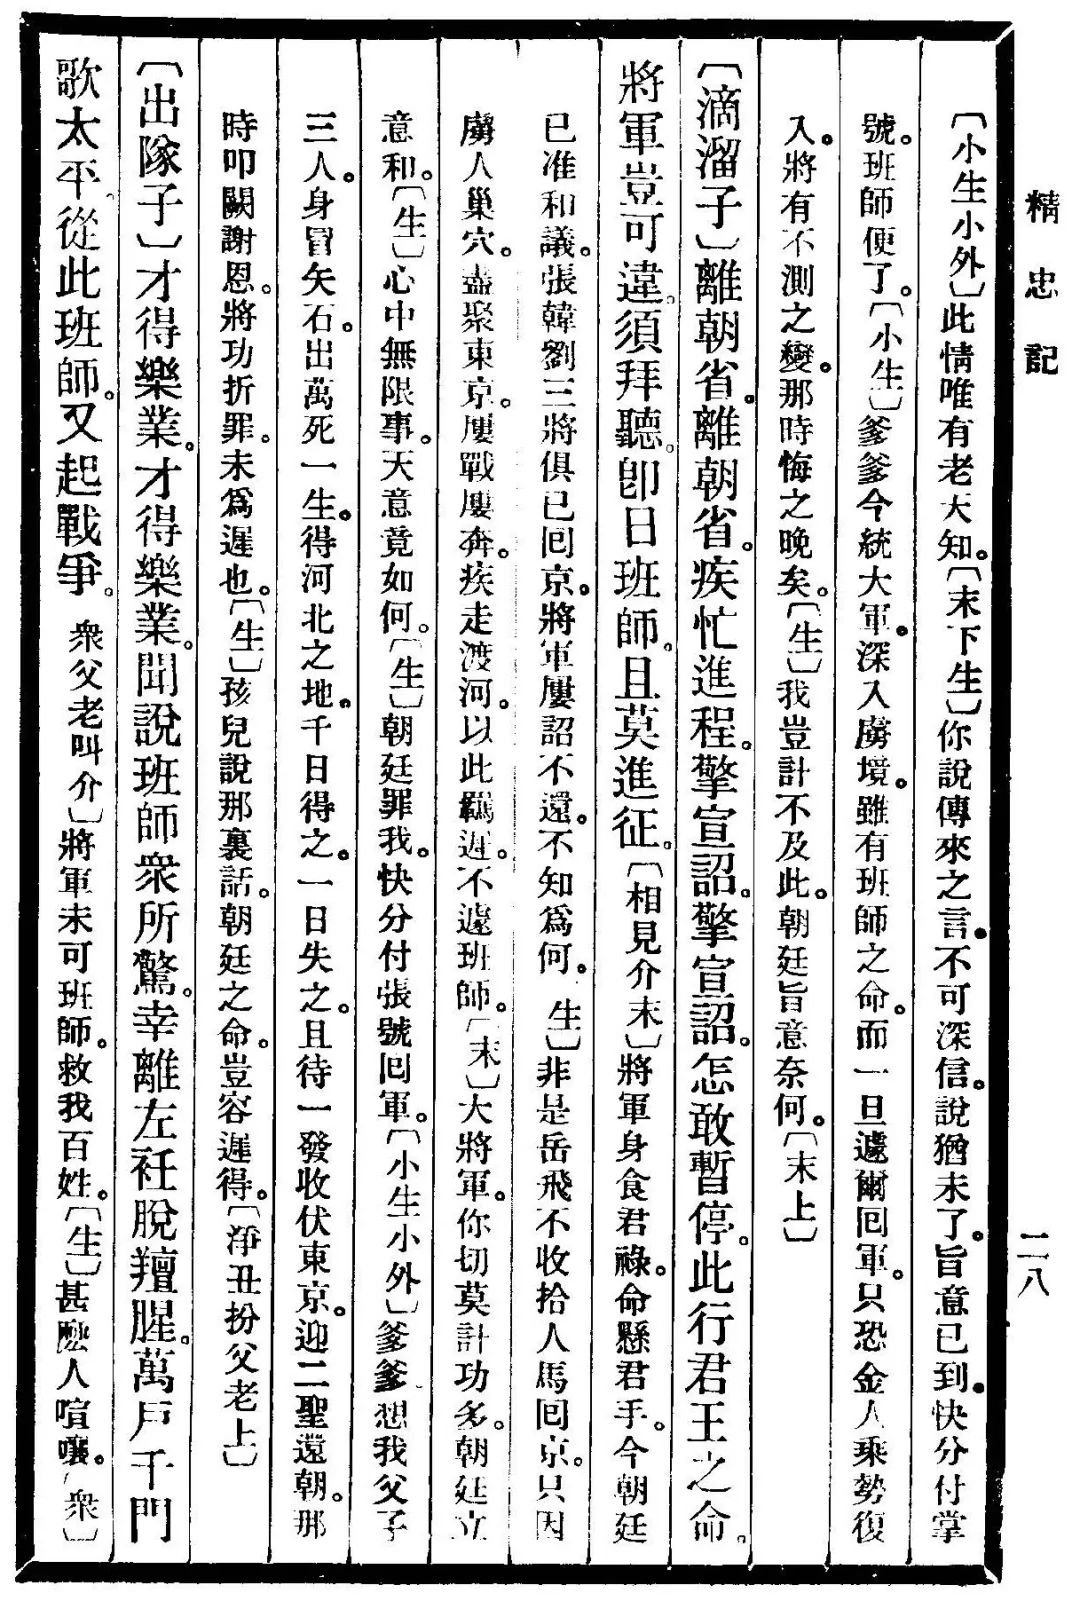 精忠記
二八
〔小生小外〕此情唯有老天知。〔末下生〕你說傳來之言。不可深信。說猶未了。旨意已到。快分付掌
號。班師便了。〔小生〕爹爹今統大軍。深入虜境。雖有班師之命。而一旦遽爾回軍。只恐金人乘勢復
入。將有不測之變。那時悔之晚矣。〔生〕我豈計不及此。朝廷旨意奈何。〔末上〕
〔滴溜子〕離朝省。離朝省。疾忙進程。擎宣詔。擎宣詔。怎敢暫停。此行君王之命。
將軍豈可違。須拜聽。卽日班師。且莫進征。〔相見介末〕將軍身食君祿。命懸君手。今朝廷
已准和議。張韓劉三將俱已回京。將軍屢詔不還。不知爲何。 生〕非是岳飛不收拾人馬回京。只因
虜人巢穴。盡聚東京。屢戰屢奔。疾走渡河。以此羈遲。不遽班師。〔末〕大將軍。你切莫計功多。朝廷立
意和。〔生〕心中無限事。天意竟如何。〔生〕朝廷罪我。快分付張號回軍。〔小生小外〕爹爹想我父子
三人。身冒矢石。出萬死一生。得河北之地。千日得之。一日失之。且待一發收伏東京。迎二聖還朝。那
時叩闕謝恩。將功折罪。未爲遲也。〔生〕孩兒說那裏話。朝廷之命。豈容遲得。〔淨丑扮父老上〕
〔出隊子〕才得樂業。才得樂業。聞說班師衆所驚。幸離左衽脫羶腥。萬戶千門
歌太平。從此班師。又起戰爭。 衆父老叫介〕將軍未可班師。救我百姓。〔生〕甚麽人喧嚷。〔衆〕